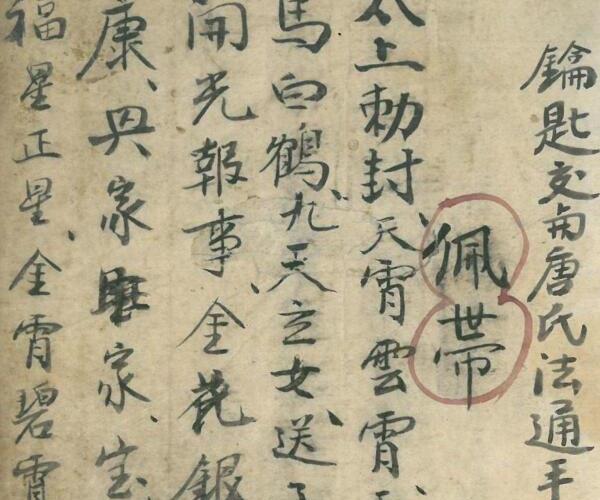 鑰匙交与唐氏法通手
佩帶
太上勅封、天霄雲霄、
馬白鶴、九天玄女送
開光報事、金花銀
康、與家家、宝
福星正星、金霄碧霄